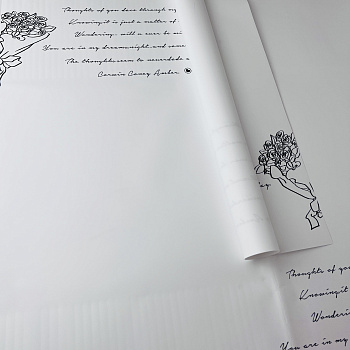 Thoughts of you dose through my
Knowing,it is just a matter of
Wondering, will u ever be mi
You are in my dreams,night,and some
The thoughts,seem to never,fade a
Corwin Corey Amber.
ay.
Thoughts of you
Knowing,it
Wonderin
You are in my